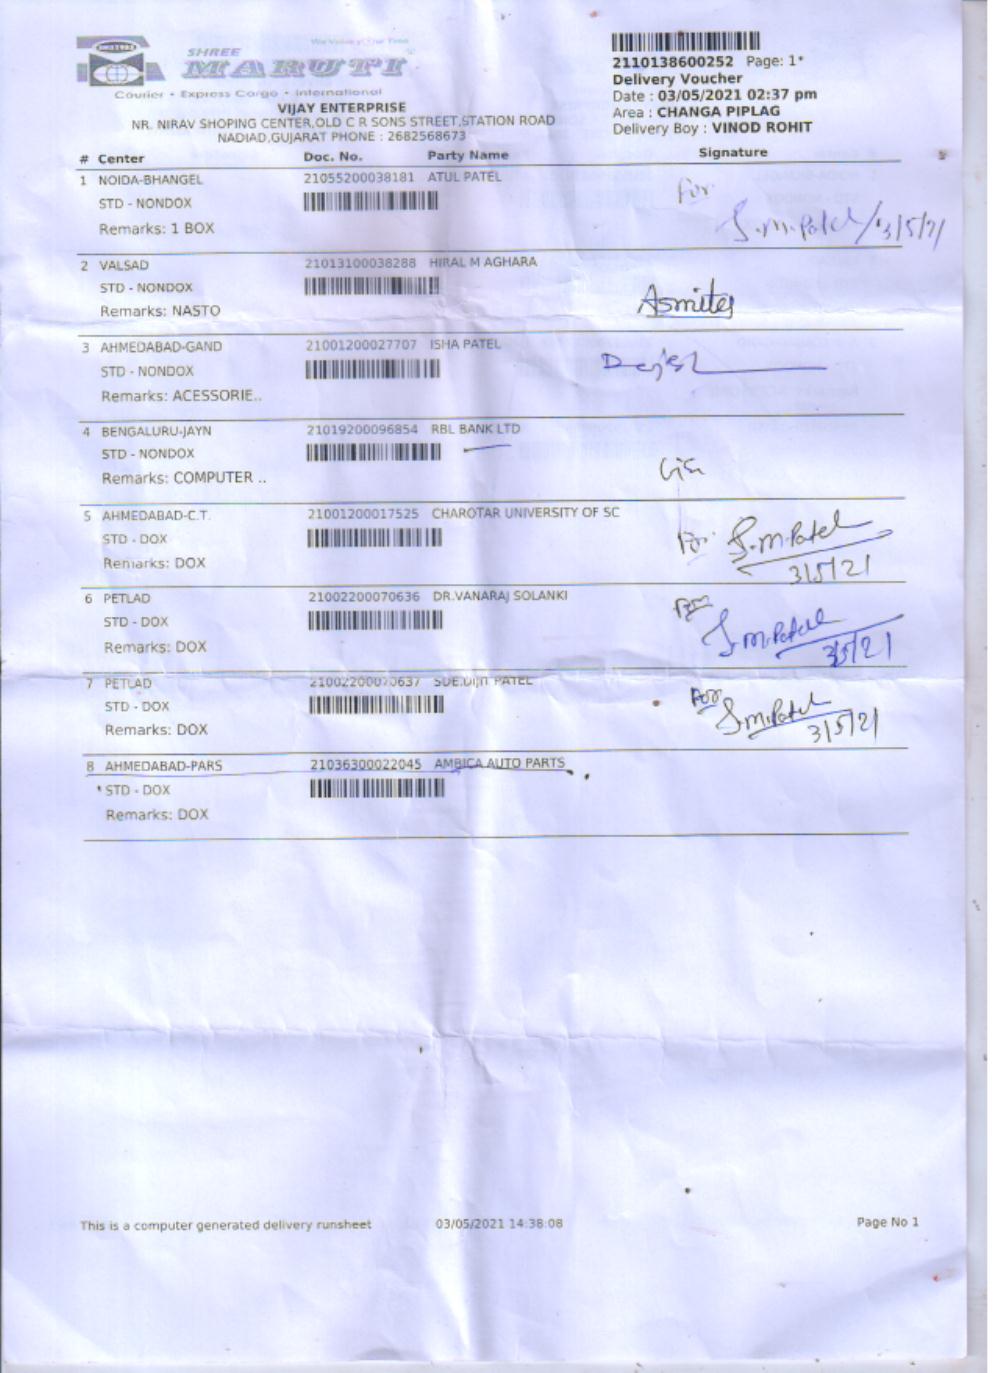 We Value Your Time
SHREE
MARUTI
Courier • Express Cargo • International
2110138600252 Page: 1*
Delivery Voucher
Date : 03/05/2021 02:37 pm
Area : CHANGA PIPLAG
Delivery Boy : VINOD ROHIT
VIJAY ENTERPRISE
NR. NIRAV SHOPING CENTER,OLD C R SONS STREET,STATION ROAD
NADIAD,GUJARAT PHONE : 2682568673
# Center Doc. No. Party Name Signature
1 NOIDA-BHANGEL 21055200038181 ATUL PATEL
STD - NONDOX
For
Remarks: 1 BOX
S.M.Patel 3/5/21
2 VALSAD 21013100038288 HIRAL M AGHARA
STD - NONDOX
Remarks: NASTO
3 AHMEDABAD-GAND 21001200027707 ISHA PATEL
STD - NONDOX
Remarks: ACESSORIE..
4 BENGALURU-JAYN 21019200096854 RBL BANK LTD
STD - NONDOX
Remarks: COMPUTER ..
5 AHMEDABAD-C.T. 21001200017525 CHAROTAR UNIVERSITY OF SC
STD - DOX
For S.M.Patel
Remarks: DOX
3/5/21
6 PETLAD 21002200070636 DR.VANARAJ SOLANKI
STD - DOX
S.M.Patel
Remarks: DOX
3/5/21
7 PETLAD 21002200070637 PATEL
STD - DOX
For S.M.Patel
Remarks: DOX
3/5/21
8 AHMEDABAD-PARS 21036300022045 AMBICA AUTO PARTS
STD - DOX
Remarks: DOX
This is a computer generated delivery runsheet 03/05/2021 14:38:08 Page No 1